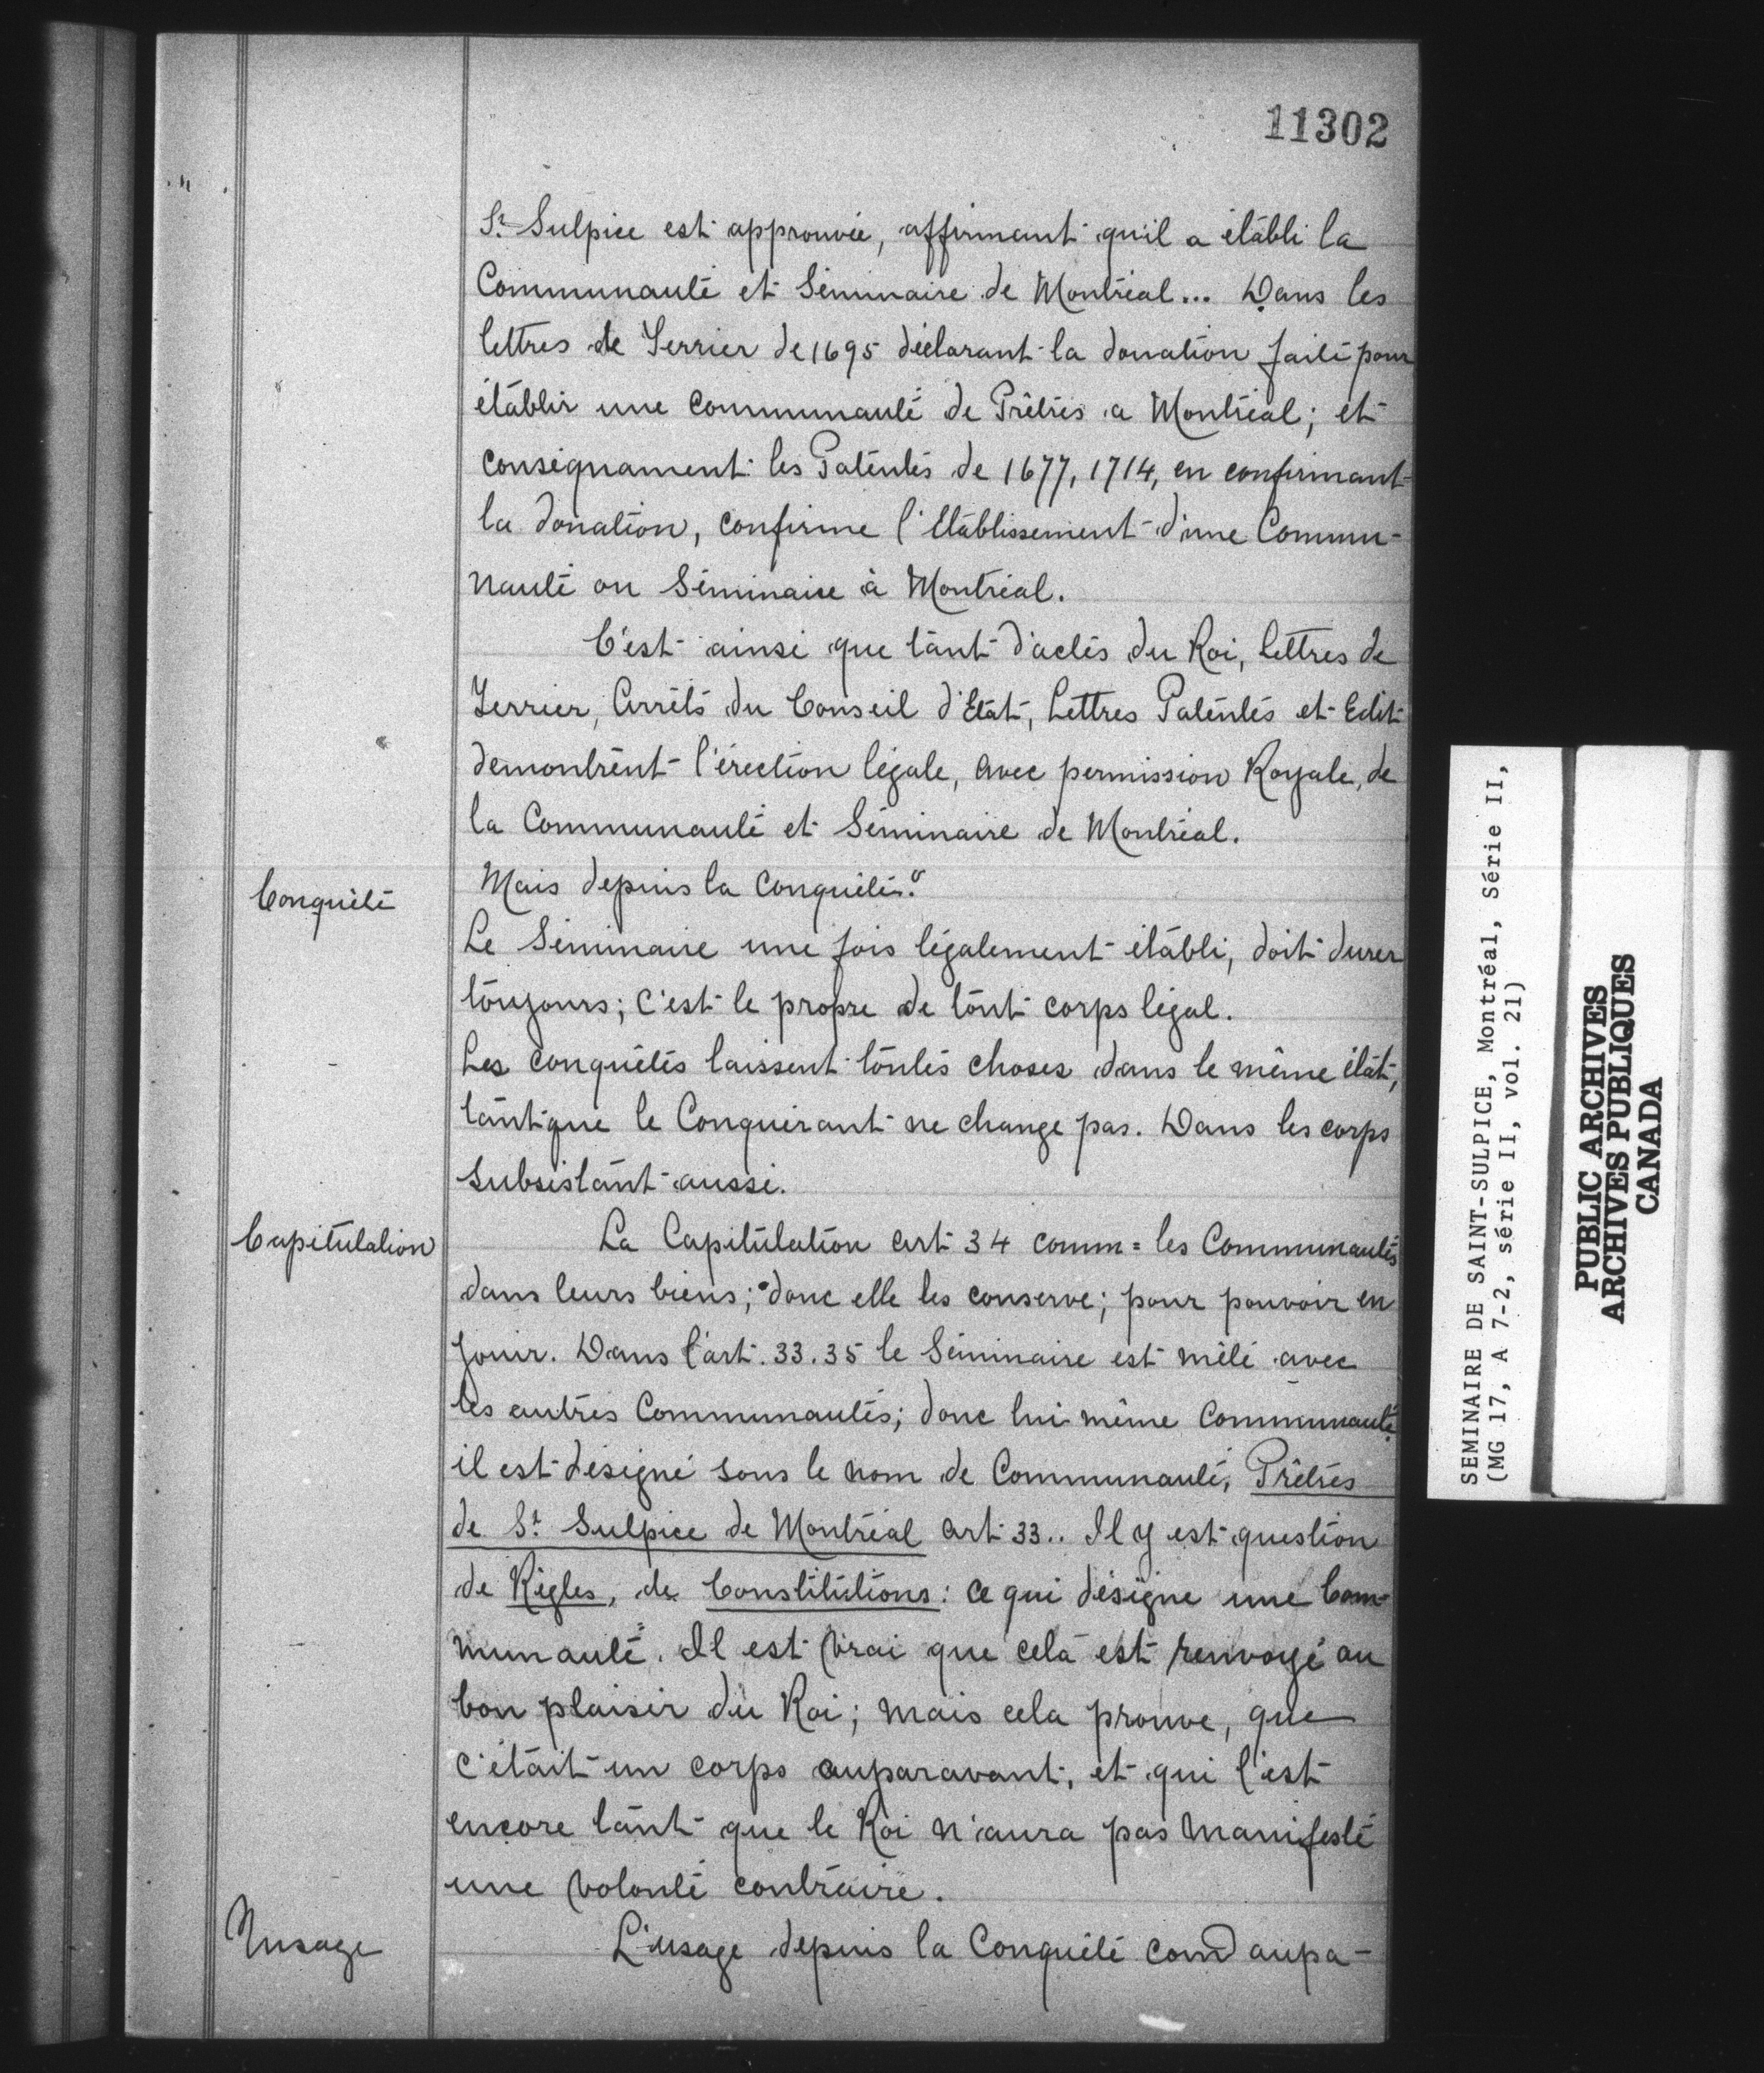 11302
St. Sulpice est approuvée, affirmant qu'il a établi la
Communauté et Séminaire de Montréal... Dans les
lettres de Terrier de 1695 déclarant la donation faite pour
établir une Communauté de Prêtres a Montréal; et
conséquament les Patentes de 1677, 1714, en confirmant
la donation, confirme l'Etablissement d'une Commu-
nauté ou Séminaire à Montréal.
C'est ainsi que tant d'actes du Roi, lettres de
Terrier, Arrêts du Conseil d'Etat, Lettres Patentes et Edit
demontrent l'érection légale, avec permission Royale, de
la Communauté et Séminaire de Montréal.
Conquête
Mais depuis la Conquête?
Le Séminaire une fois légalement établi, doit durer
toujours; c'est le propre de tout corps légal.
Les conquêtes laissent toutes choses dans le même état,
tant que le Conquérant ne change pas. Dans les corps
subsistant aussi.
Capitulation
La Capitulation art 34 comm = les Communautés
dans leurs biens; donc elle les conserve; pour pouvoir en
jouir. Dans l'art. 33.35 le Séminaire est mêlé avec
les autres Communautés; donc lui même Communauté
il est désigné sous le nom de Communauté, Prêtres
de St. Sulpice de Montréal art 33.. Il y est question
de Règles, de Constitutions: ce qui désigne une Com-
munauté. Il est vrai que cela est renvoyé au
bon plaisir du Roi; mais cela prouve, que
c'était un corps auparavant, et qui l'est
encore tant que le Roi n'aura pas manifesté
une volonté contraire.
Nusage
L'usage depuis la Conquête com aupa-
SEMINAIRE DE SAINT-SULPICE, Montréal, Série II,
(MG 17, A 7-2, série II, vol. 21)
PUBLIC ARCHIVES
ARCHIVES PUBLIQUES
CANADA